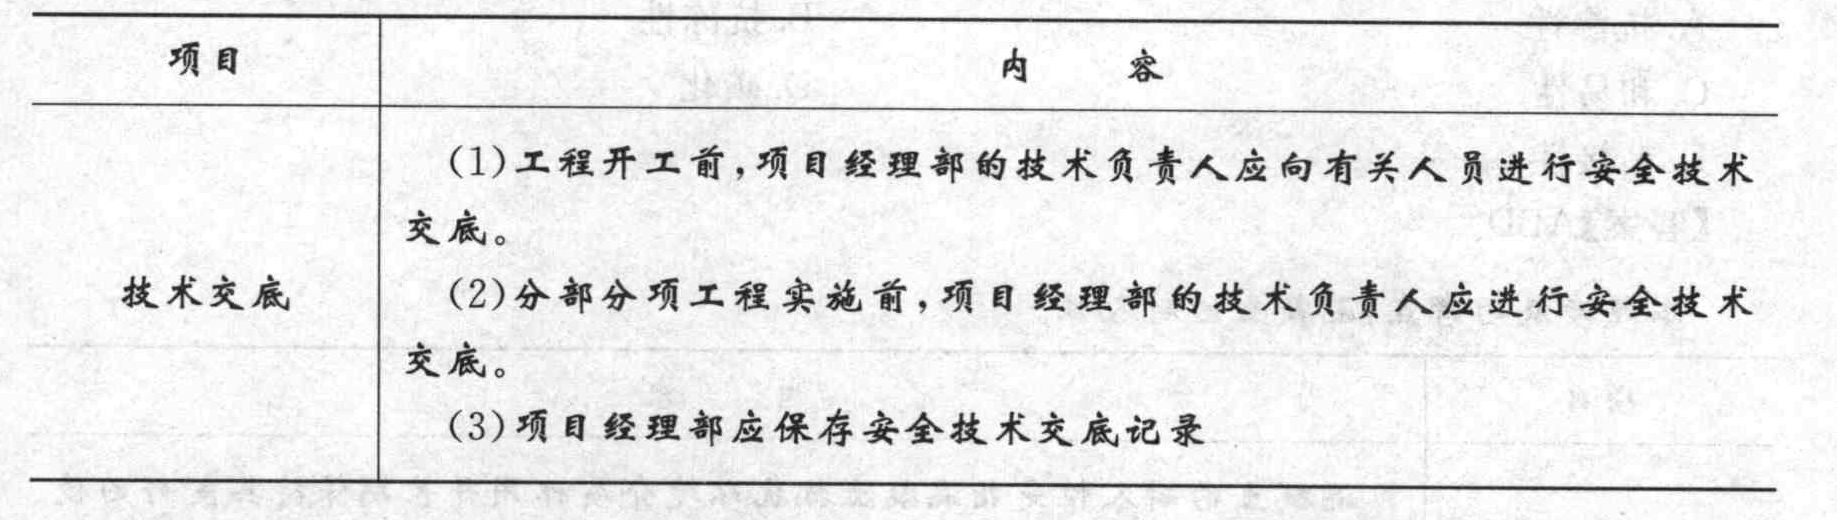 项目
内 容
技术交底
(1)工程开工前,项目经理部的技术负责人应向有关人员进行安全技术
交底。
(2)分部分项工程实施前,项目经理部的技术负责人应进行安全技术
交底。
(3)项目经理部应保存安全技术交底记录